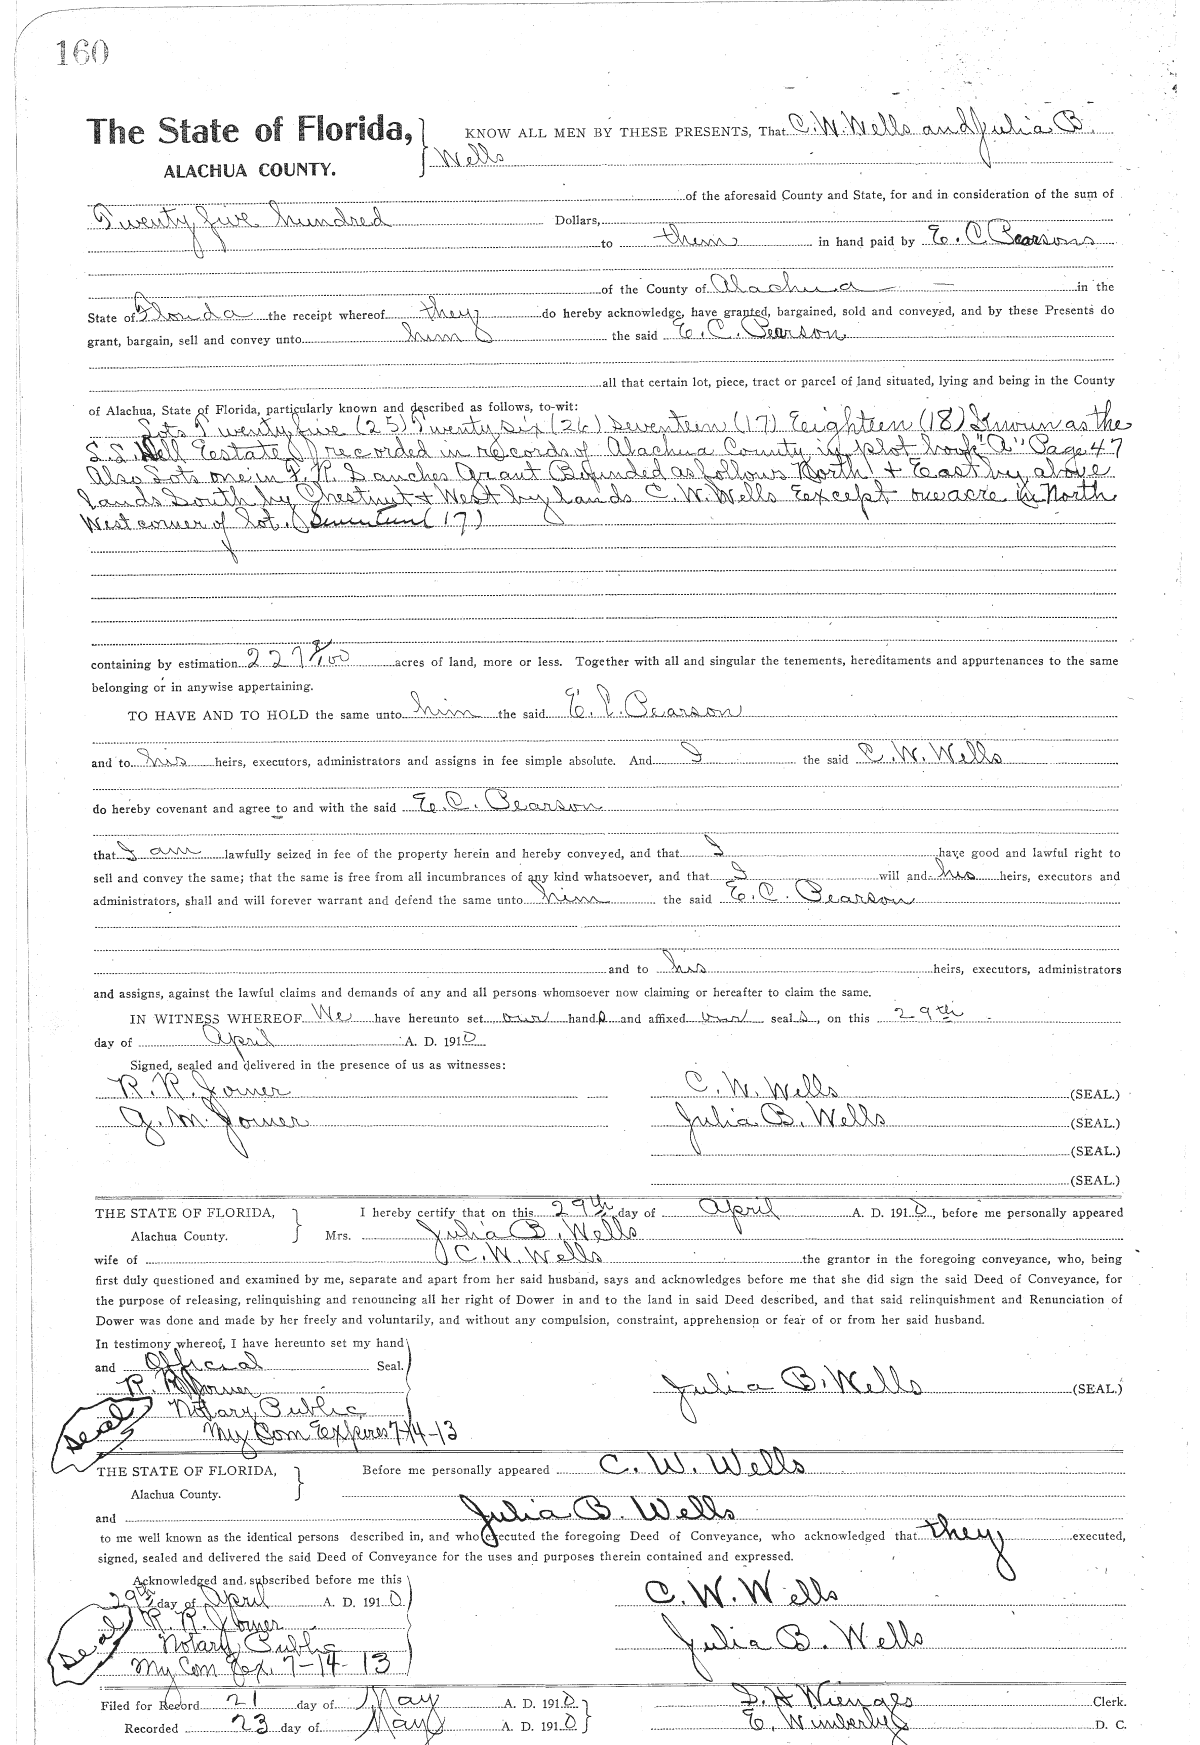 160
The State of Florida, KNOW ALL MEN BY THESE PRESENTS, That C. W. Wells and Julia B.
ALACHUA COUNTY. Wells
of the aforesaid County and State, for and in consideration of the sum of
Twenty five hundred Dollars,
to them in hand paid by E. C Pearsons
of the County of Alachua in the
State of Florida the receipt whereof they do hereby acknowledge, have granted, bargained, sold and conveyed, and by these Presents do
grant, bargain, sell and convey unto him the said E. C. Pearson
all that certain lot, piece, tract or parcel of land situated, lying and being in the County
of Alachua, State of Florida, particularly known and described as follows, to-wit:
Lots Twenty five (25) Twenty six (26) Seventeen (17) Eighteen (18) Known as the
Estate recorded in records of Alachua County in plot book "A" Page 47
Also Lots one in F. R. Sanches Grant Bounded as follows North + East by above
lands South by Chestnut + West by lands C. W. Wells Except one acre in North
West corner of Lot Seventeen (17)
containing by estimation 227 /100 acres of land, more or less. Together with all and singular the tenements, hereditaments and appurtenances to the same
belonging or in anywise appertaining.
TO HAVE AND TO HOLD the same unto him the said E. C. Pearson
and to his heirs, executors, administrators and assigns in fee simple absolute. And I the said C. W. Wells
do hereby covenant and agree to and with the said E. C. Pearson
that I am lawfully seized in fee of the property herein and hereby conveyed, and that I have good and lawful right to
sell and convey the same; that the same is free from all incumbrances of any kind whatsoever, and that I will and his heirs, executors and
administrators, shall and will forever warrant and defend the same unto him the said E. C. Pearson
and to his heirs, executors, administrators
and assigns, against the lawful claims and demands of any and all persons whomsoever now claiming or hereafter to claim the same.
IN WITNESS WHEREOF We have hereunto set our hands and affixed our seals, on this 29th
day of April A. D. 1910
Signed, sealed and delivered in the presence of us as witnesses:
R. R. Joiner C. W. Wells (SEAL.)
G. M. Joiner Julia B. Wells (SEAL.)
(SEAL.)
(SEAL.)
THE STATE OF FLORIDA, I hereby certify that on this 29th day of April A. D. 1910, before me personally appeared
Alachua County. Mrs. Julia B. Wells
wife of C. W. Wells the grantor in the foregoing conveyance, who, being
first duly questioned and examined by me, separate and apart from her said husband, says and acknowledges before me that she did sign the said Deed of Conveyance, for
the purpose of releasing, relinquishing and renouncing all her right of Dower in and to the land in said Deed described, and that said relinquishment and Renunciation of
Dower was done and made by her freely and voluntarily, and without any compulsion, constraint, apprehension or fear of or from her said husband.
In testimony whereof, I have hereunto set my hand
and Official Seal.
R. R. Joiner Julia B. Wells (SEAL.)
Seal Notary Public
My Com Expires 7-14-13
THE STATE OF FLORIDA, Before me personally appeared C. W. Wells
Alachua County.
and Julia B. Wells
to me well known as the identical persons described in, and who executed the foregoing Deed of Conveyance, who acknowledged that they executed,
signed, sealed and delivered the said Deed of Conveyance for the uses and purposes therein contained and expressed.
Acknowledged and subscribed before me this
29th day of April A. D. 1910 C. W. Wells
Seal R. R. Joiner
Notary Public Julia B. Wells
My Com Ex. 7-14-13
Filed for Record 21 day of May A. D. 1910 S. H Wienges Clerk.
Recorded 23 day of May A. D. 1910 E. Wimberly D. C.